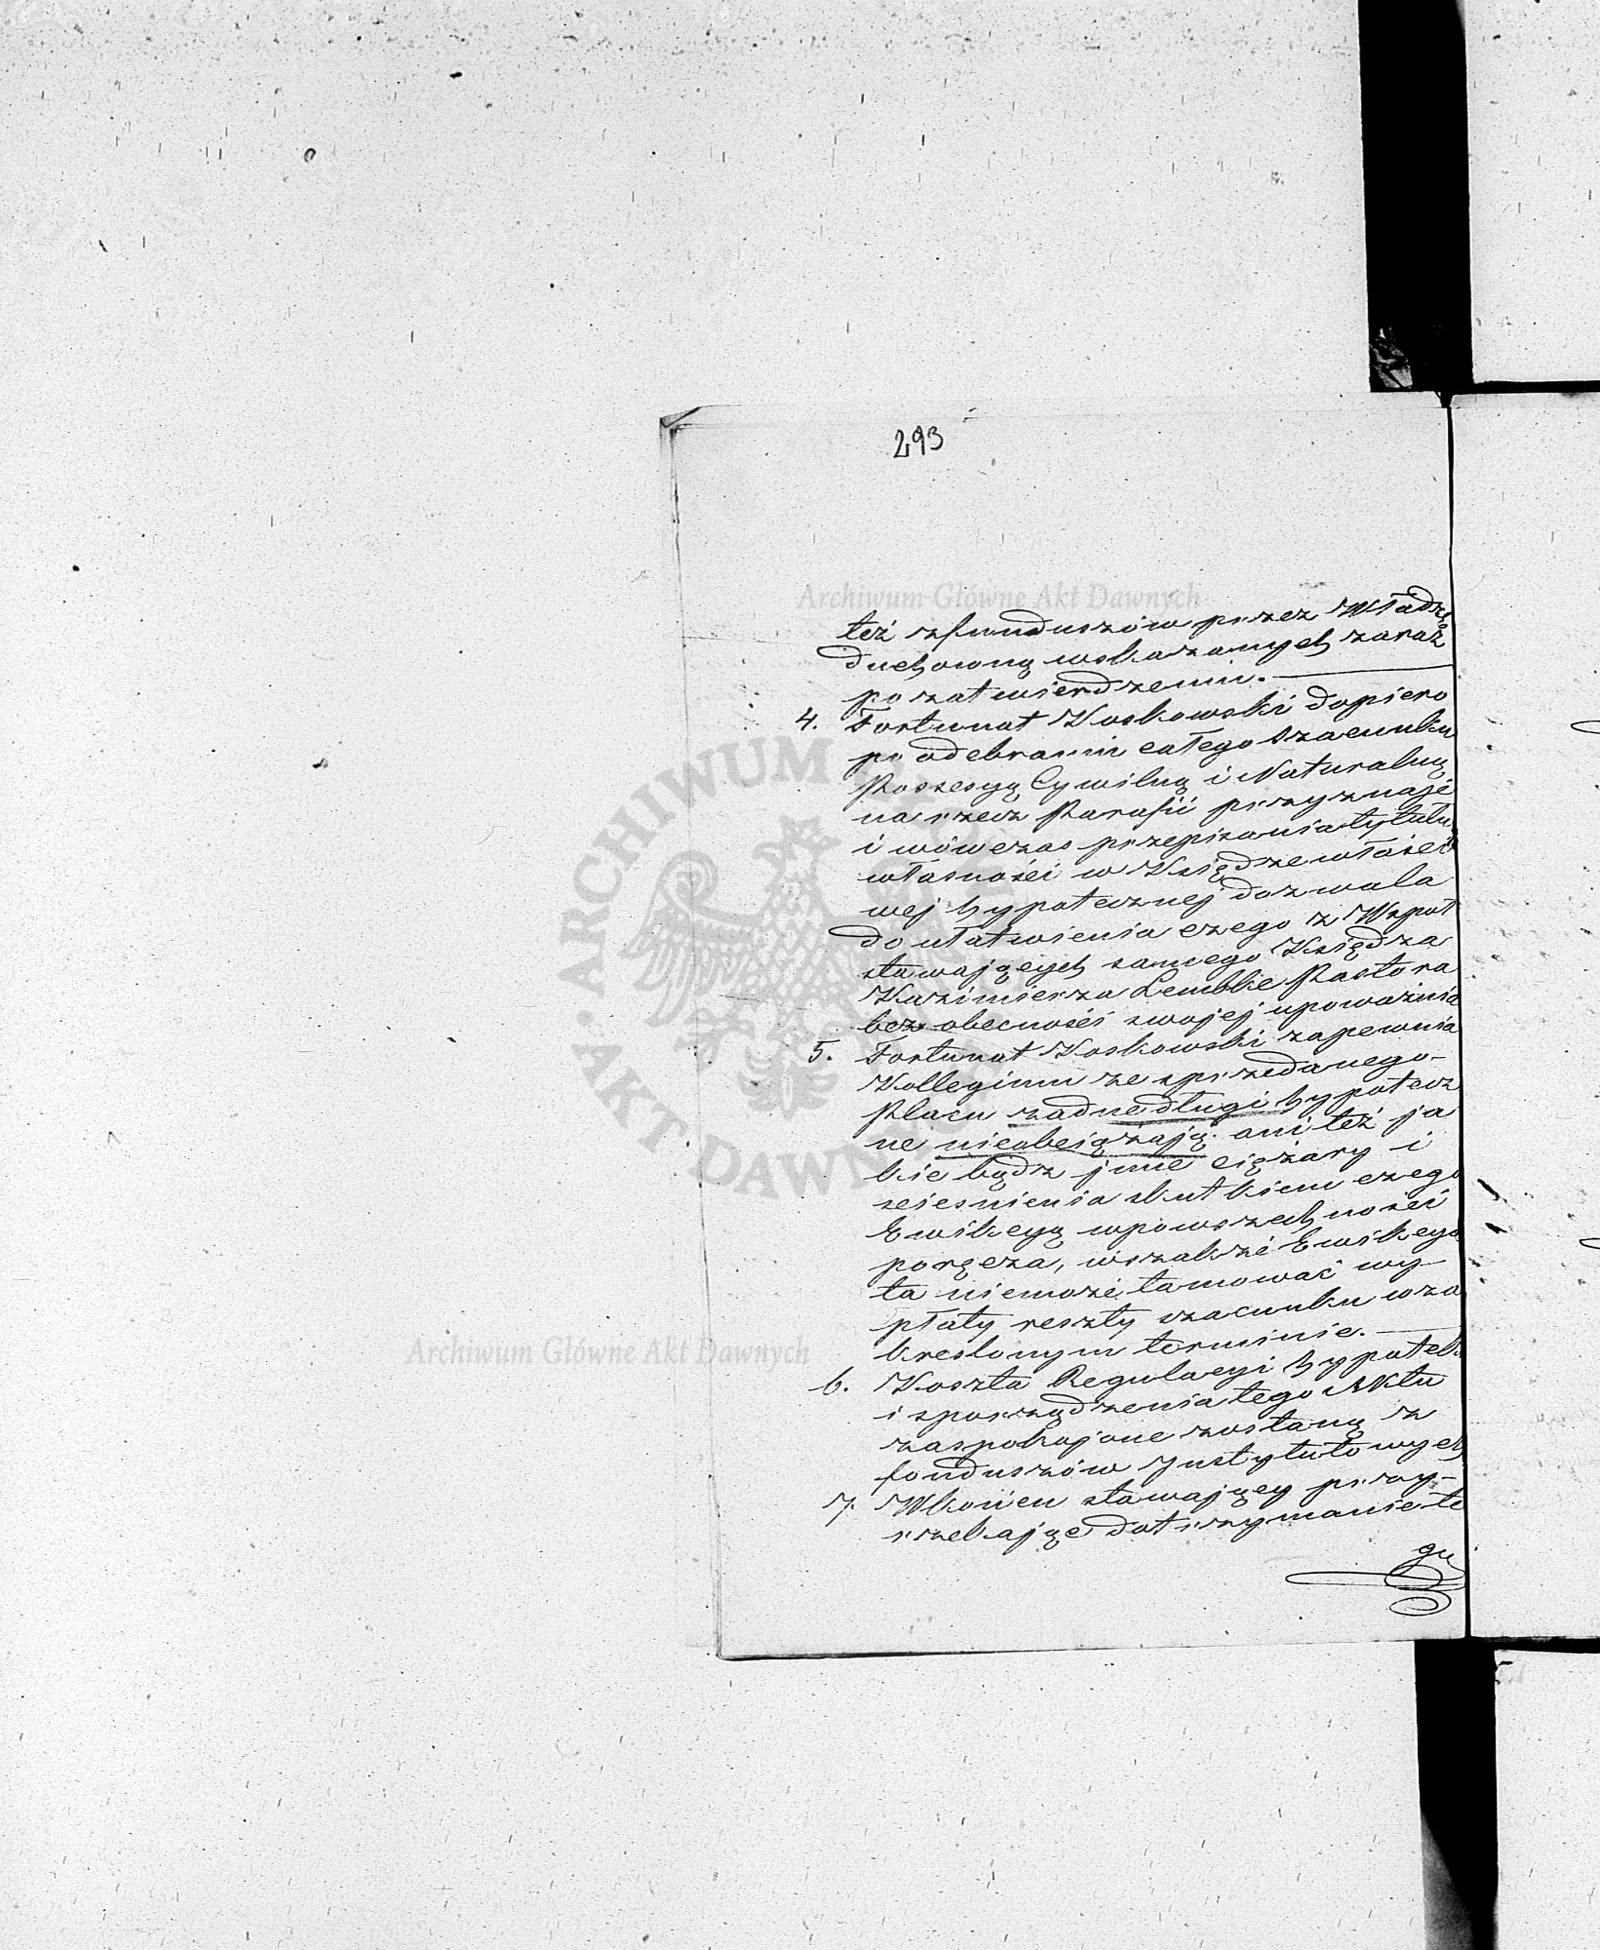 293
też zfunduszów przez Władzę
duchowną wskazanych zaraz
po zatwierdzeniu.
4. Fortunat Koskowski dopiero
po odebraniu całego szacunku
Possesyą Cywilną i Naturalną
na rzecz Parafii przyznaje
i wówczas przepisania tytułu
własności w Księdze właści
wej hypotecznej dozwala
do ułatwienia czego z Wspoł
stawających samego Księdza
Kazimierza Lembke Pastora
bez obecności swojej upoważnia
5. Fortunat Koskowski zapewnia
Kollegium ze sprzedanego
Placu żadne długi hypotecz
ne nieobciążają ani też ja
kie bądz jnne ciężary i
scieśnienia skutkiem czego
Ewikcyą wpowszechności
poręcza, wszakże Ewikcya
ta niemoże tamować wy-
płaty reszty szacunku wza
kreslonym terminie.
6. Koszta Regulacyi hypotek
i sporządzenia tego Aktu
zaspokojone zostaną z
fonduszów Jnstytutowych
7. Wkońcu stawający przy-
rzekając dotrzymanie te
go
Archiwum Główne Akt Dawnych
Archiwum Główne Akt Dawnych